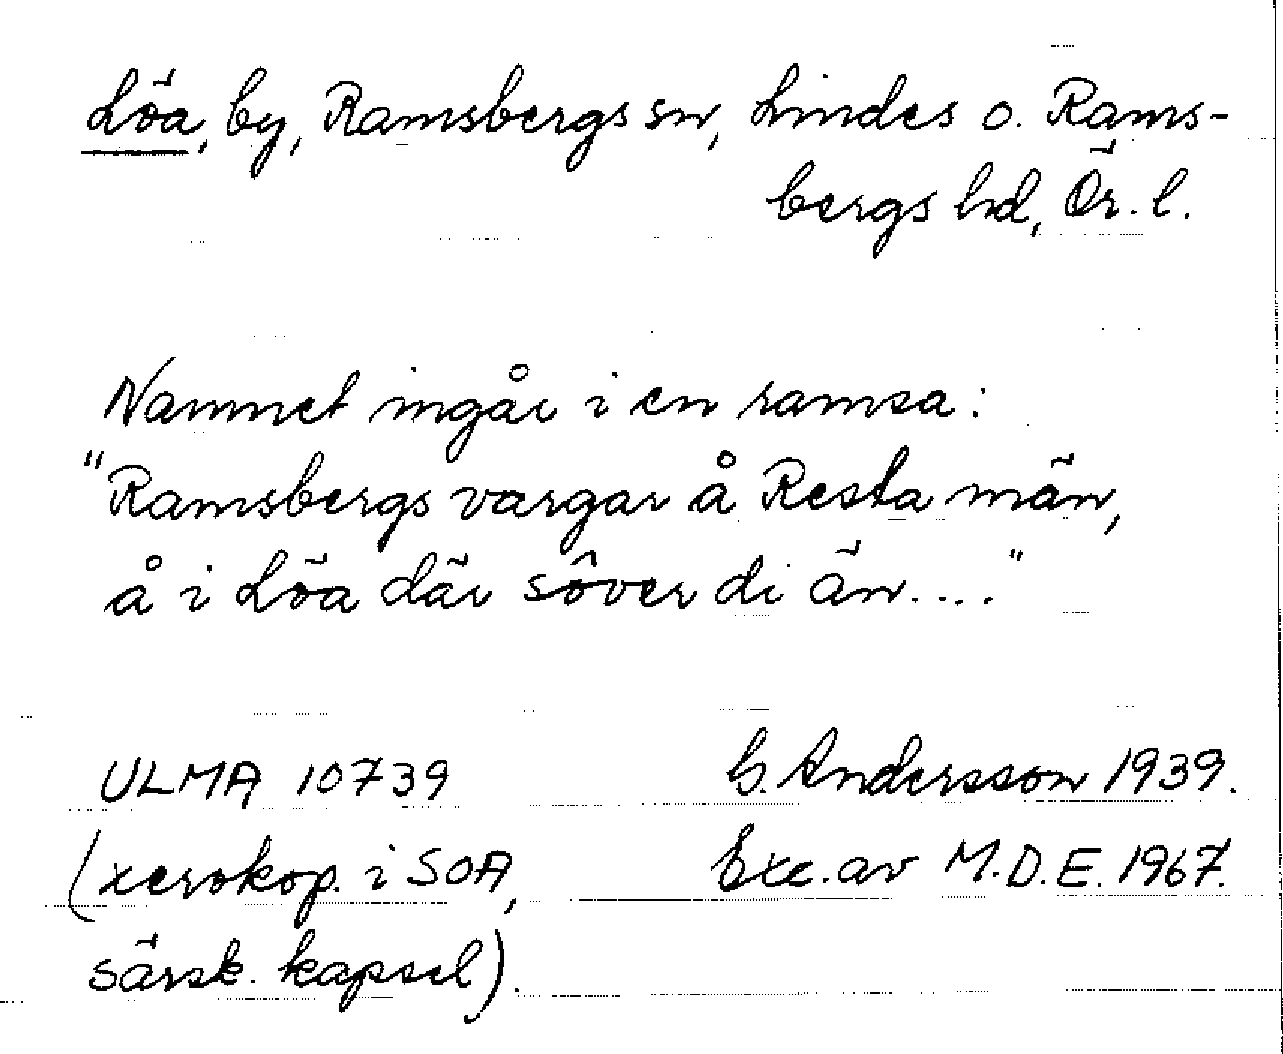 Löa, by, Ramsbergs sn, Lindes o. Rams-
bergs hd, Ör. l.
Namnet ingår i en ramsa:
"Ramsbergs vargar å Resta män,
å i Löa där sôver di än...."
ULMA 10739
G. Andersson 1939.
(xerokop. i SOA,
Exc. av M.D.E. 1967.
särsk. kapsel).